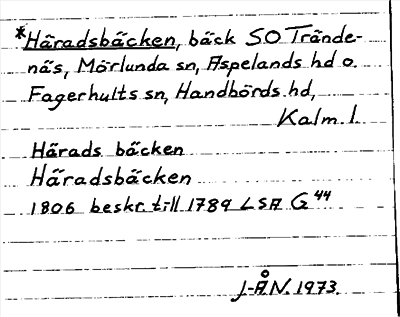 *Häradsbäcken, bäck S.O. Trände-
näs, Mörlunda sn, Aspelands hd o.
Fagerhults sn, Handbörds hd,
Kalm. l.
Härads bäcken
Häradsbäcken
1806 beskr. till 1789 LSA G 44
J-ÅN. 1973.